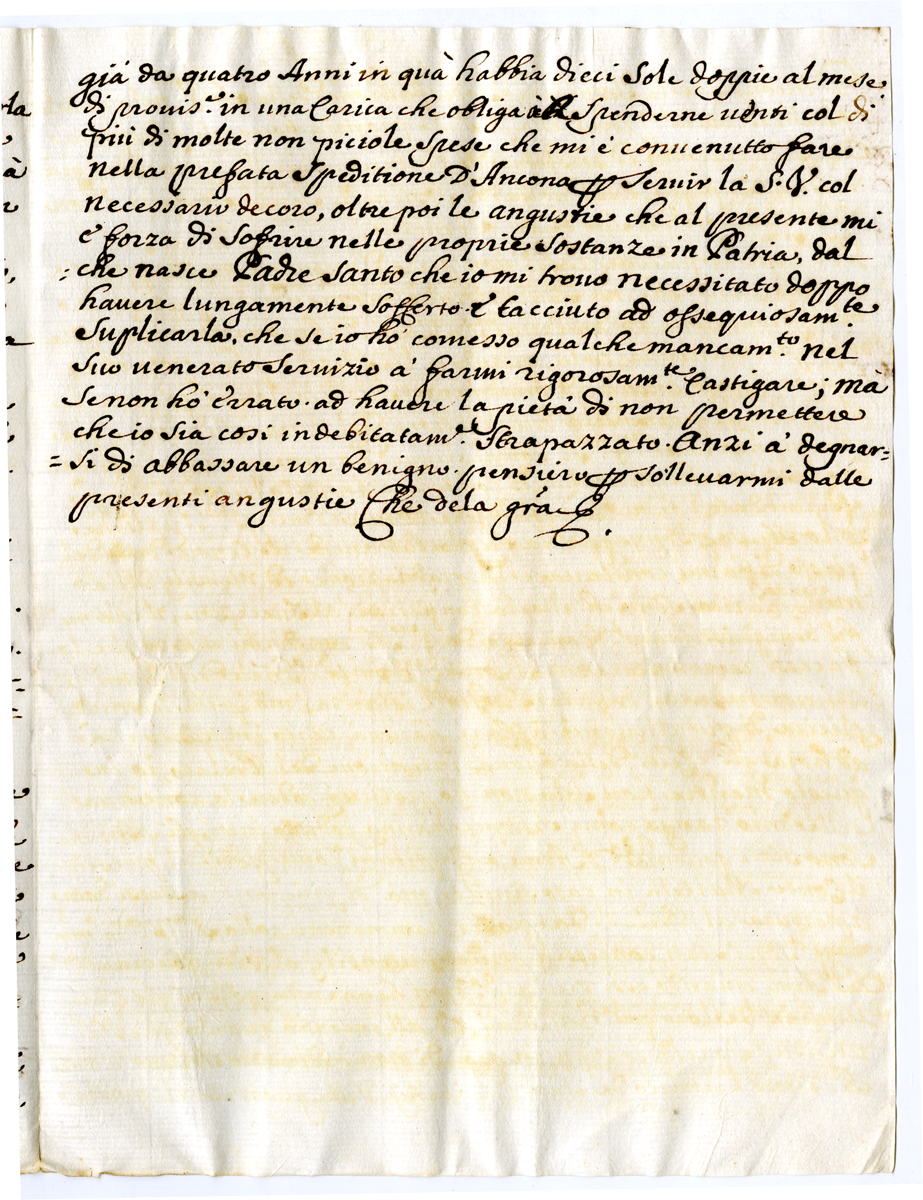 già da quatro Anni in quà habbia dieci sole doppie al mese
di prouis.e in una Carica che obliga à spenderne uenti col di
più di molte non piciole spese che mi è conuenutto fare
nella prefata speditione D'Ancona per seruir la S. V. col
necessario decoro, oltre poi le angustie che al presente mi
è forza di sofrire nelle proprie sostanze in Patria, dal
= che nasce Padre Santo che io mi trouo necessitato doppo
hauere lungamente sofferto è tacciuto ad ossequiosam.te
suplicarla, che se io hò comesso qualche mancam.to nel
suo venerato seruizio à farmi rigorosam.te Castigare; mà
se non hò errato ad hauere la pietà di non permettere
che io sia cosi indebitatam.te strapazzato. Anzi à degnar=
= si di abbassare un benigno pensiero per solleuarmi dalle
presenti angustie Che dela gra